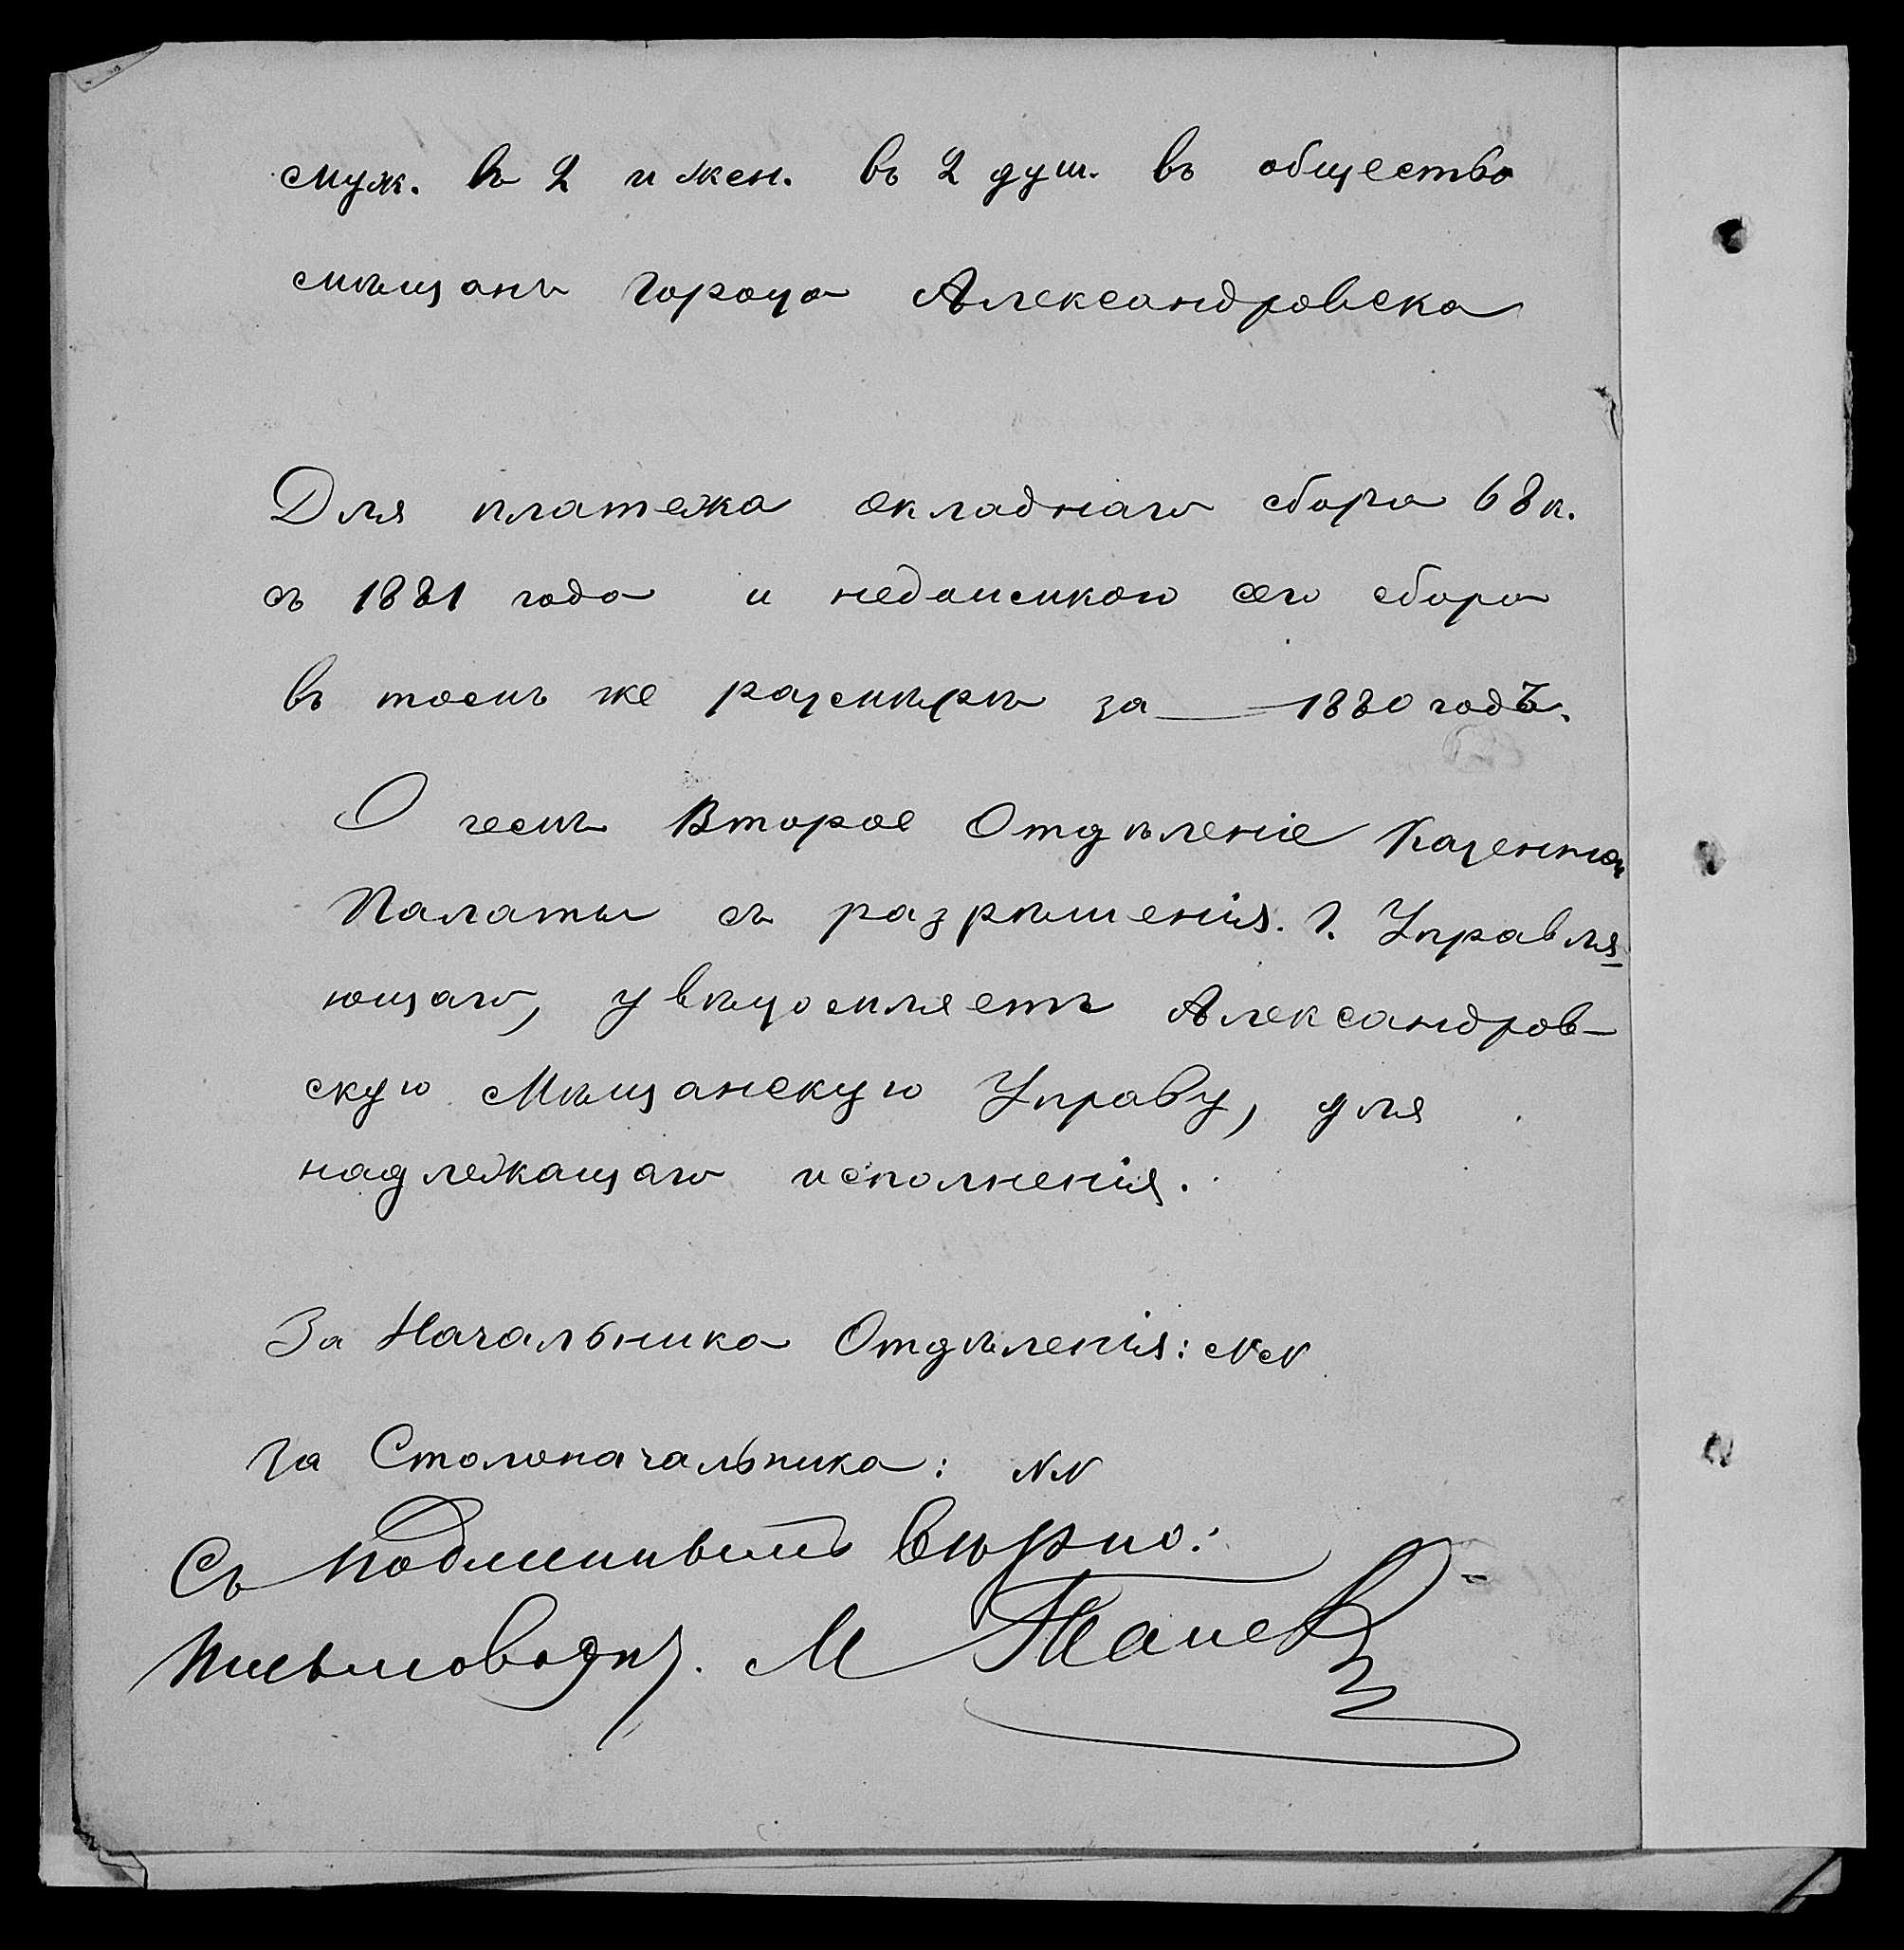 муж. въ 2 и жен. въ 2 душ. въ общество
мѣщанъ города Александровска
Для платежа окладнаго сбора 68 к.
съ 1881 года и недоимкою сего сбора
въ томъ же размѣрѣ за 1880 годъ.
О чемъ Второе Отдѣленіе Казенной
Палаты съ разрѣшенія Г. Управля-
ющаго, увѣдомляетъ Александров-
скую Мѣщанскую Управу, для
надлежащаго исполненія.
За Начальника Отдѣленія: NN
За Столоначальника: NN
Съ подлиннымъ вѣрно:
Письмовод. М